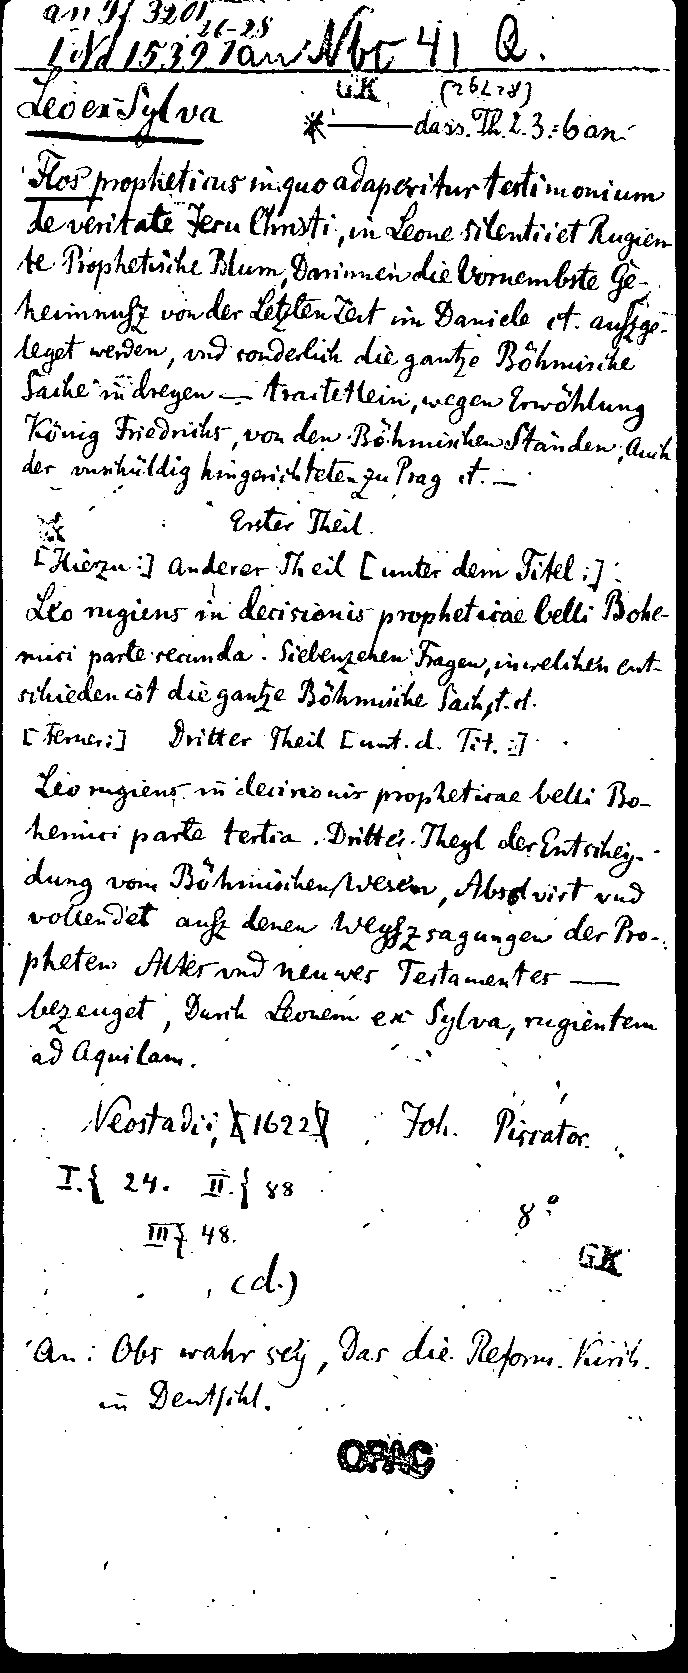 an If 3201
26-28
1 in Nd 1539 7 an Nbc 41 Q.
GK (26278)
Leo ex Sylva
* —— dass. Th. 2. 3. = 6 an
Flos propheticus in quo adaperitur testimonium
de veritate Jesu Christi, in Leone silenti et Rugien
te Prophetische Blum, Darinnen die Vornembste Ge-
heimnusz von der Letzten Zeit im Daniele et. auszge-
leget werden, vnd sonderlich die gantze Böhmische
Sache in dreyen — tractetlein, wegen Erwöhlung
König Friedrichs, von den Böhmischen Ständen, Auch
der vnschüldig hingerichteten zu Prag et. —
Erster Theil.
[Hierzu:] Anderer Theil [unter dem Titel:]
Leo rugiens in decisionis propheticae belli Bohe-
mici parte secunda. Siebenzehen Fragen, in welchen ent-
schieden ist die gantze Böhmische Sach, et. et.
[Ferner:] Dritter Theil [unt. d. Tit.:]
Leo rugiens in decisionis propheticae belli Bo-
hemici parte tertia. Dritter Theyl der Entschey-
dung vom Böhmischen Wesen, Absolvirt vnd
vollendet ausz denen Weyszsagungen der Pro-
pheten Altes vnd neuwes Testamentes —
bezeuget, Durch Leonem ex Sylva, rugientem
ad Aquilam.
Neostadii, [1622] Joh. Piscator.
I.{ 24. II.{ 88
8°
III{ 48.
GK
(d.)
An: Obs wahr sey, Das die Reform. Kirch.
in Deutschl.
OPAC